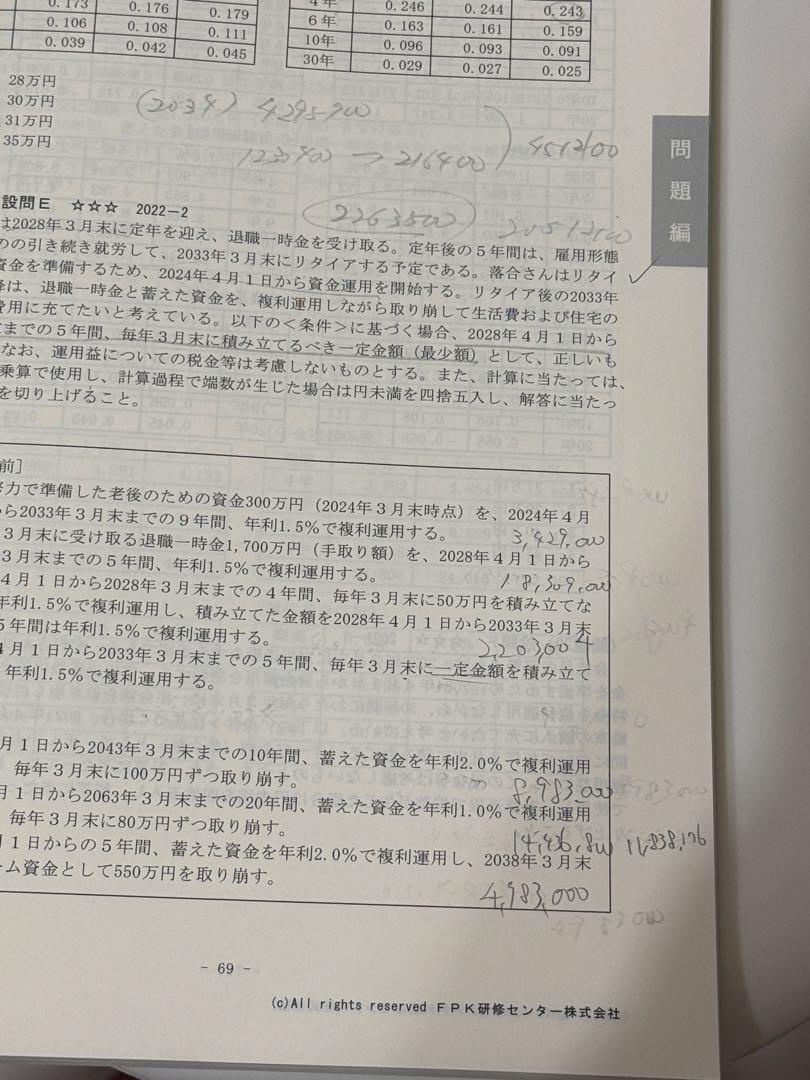 0.173 0.176 0.179
0.106 0.108 0.111
0.039 0.042 0.045
4年 0.246 0.244 0.243
6年 0.163 0.161 0.159
10年 0.096 0.093 0.091
30年 0.029 0.027 0.025
28万円
30万円
31万円
35万円
(2034) 4295700
123
→ 216400
4512100
問題編
設問E ☆☆☆ 2022−2
2263500
は2028年3月末に定年を迎え、退職一時金を受け取る。定年後の5年間は、雇用形態
のの引き続き就労して、2033年3月末にリタイアする予定である。落合さんはリタイ
資金を準備するため、2024年4月1日から資金運用を開始する。リタイア後の2033年
降は、退職一時金と蓄えた資金を、複利運用しながら取り崩して生活費および住宅の
費用に充てたいと考えている。以下の<条件>に基づく場合、2028年4月1日から
までの5年間、毎年3月末に積み立てるべき一定金額(最少額)として、正しいも
なお、運用益についての税金等は考慮しないものとする。また、計算に当たっては、
乗算で使用し、計算過程で端数が生じた場合は円未満を四捨五入し、解答に当たっ
を切り上げること。
前]
努力で準備した老後のための資金300万円(2024年3月末時点)を、2024年4月
から2033年3月末までの9年間、年利1.5%で複利運用する。
3,429,000
3月末に受け取る退職一時金1,700万円(手取り額)を、2028年4月1日から
3月末までの5年間、年利1.5%で複利運用する。
18,309,000
4月1日から2028年3月末までの4年間、毎年3月末に50万円を積み立てな
年利1.5%で複利運用し、積み立てた金額を2028年4月1日から2033年3月末
5年間は年利1.5%で複利運用する。
2,203,004
4月1日から2033年3月末までの5年間、毎年3月末に一定金額を積み立て
年利1.5%で複利運用する。
月1日から2043年3月末までの10年間、蓄えた資金を年利2.0%で複利運用
、毎年3月末に100万円ずつ取り崩す。
8,983,000
月1日から2063年3月末までの20年間、蓄えた資金を年利1.0%で複利運用
、毎年3月末に80万円ずつ取り崩す。
14,436,800 11,838,176
月1日からの5年間、蓄えた資金を年利2.0%で複利運用し、2038年3月末
ーム資金として550万円を取り崩す。
4,983,000
- 69 -
(c)All rights reserved FPK研修センター株式会社